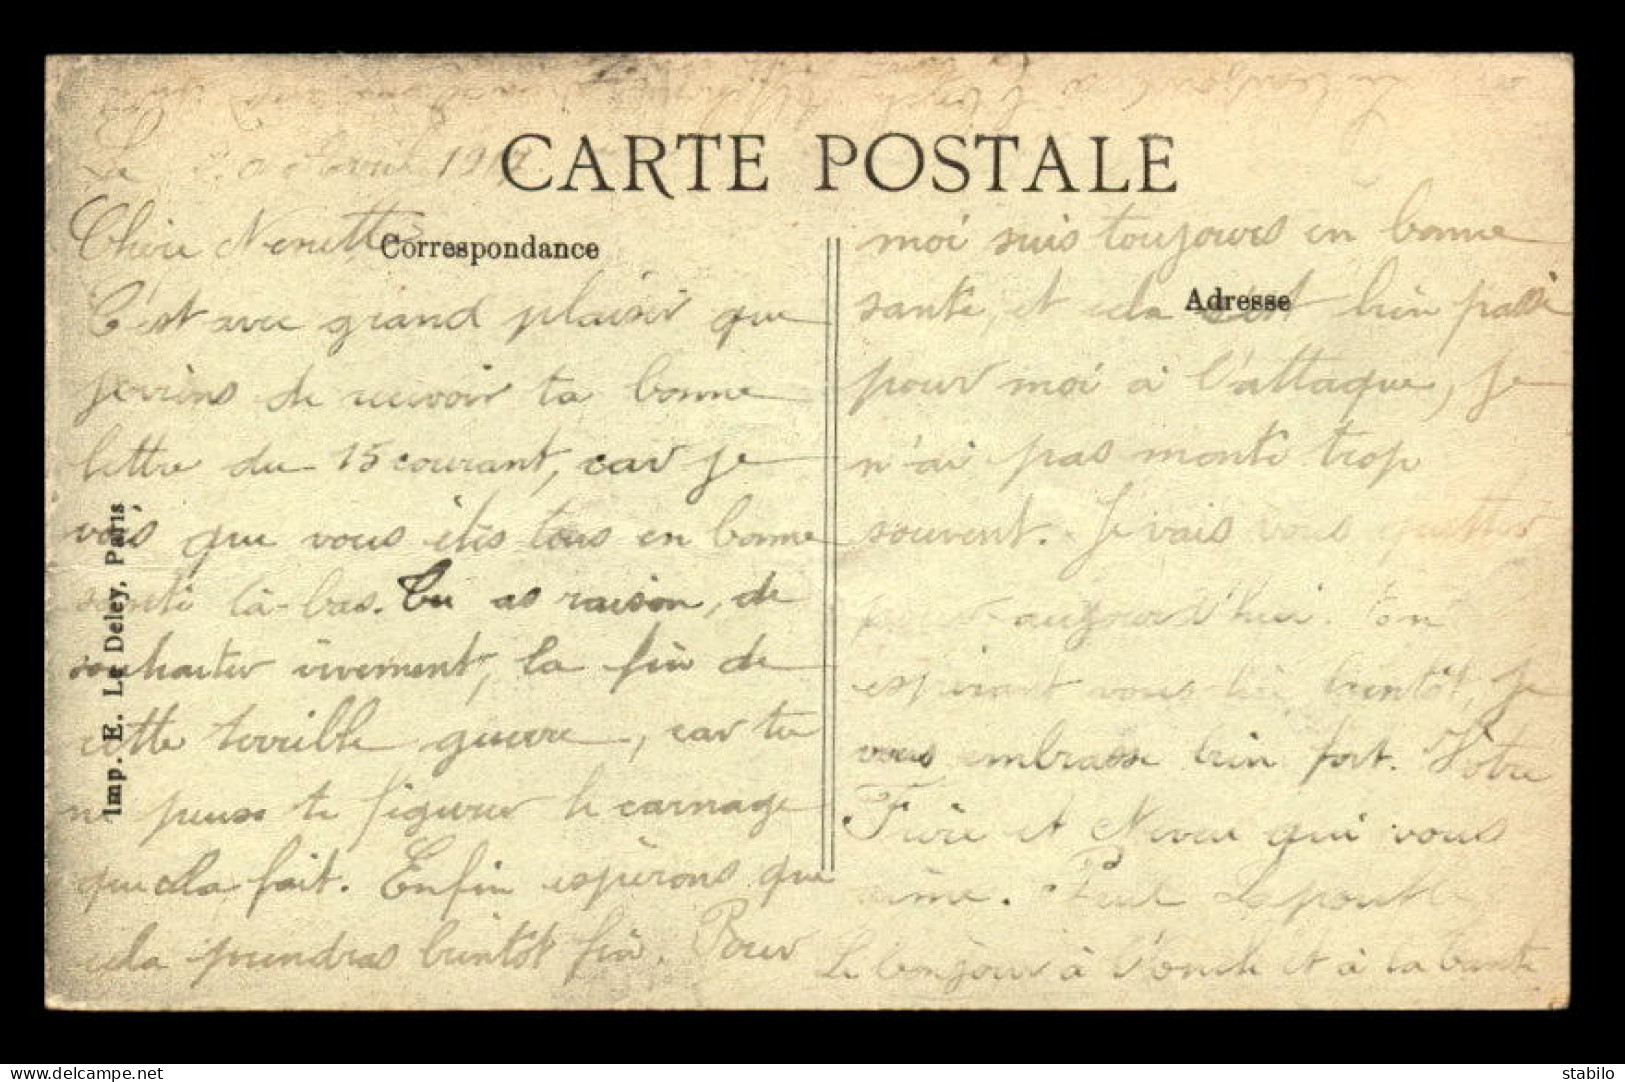 Le Avril 1917
CARTE POSTALE
Correspondance
Chère Nenette
C'est avec grand plaisir que
je viens de recevoir ta bonne
lettre du 15 courant, car je
vois que vous êtes tous en bonne
santé là-bas. Tu as raison, de
souhaiter vivement, la fin de
cette terrible guerre, car tu
ne peux te figurer le carnage
que cela fait. Enfin espérons que
cela prendras bientôt fin. Pour
Adresse
moi suis toujours en bonne
santé, et cela s'est bien passé
pour moi à l'attaque, je
n'ai pas monté trop
souvent. Je vais vous quitter
pour aujourd'hui. En
espérant vous lire bientôt, je
vous embrasse bien fort. Votre
Frère et Neveu qui vous
aime.
Le bonjour à l'oncle et à la tante
Imp. E. Le Deley, Paris
www.delcampe.net
stabilo